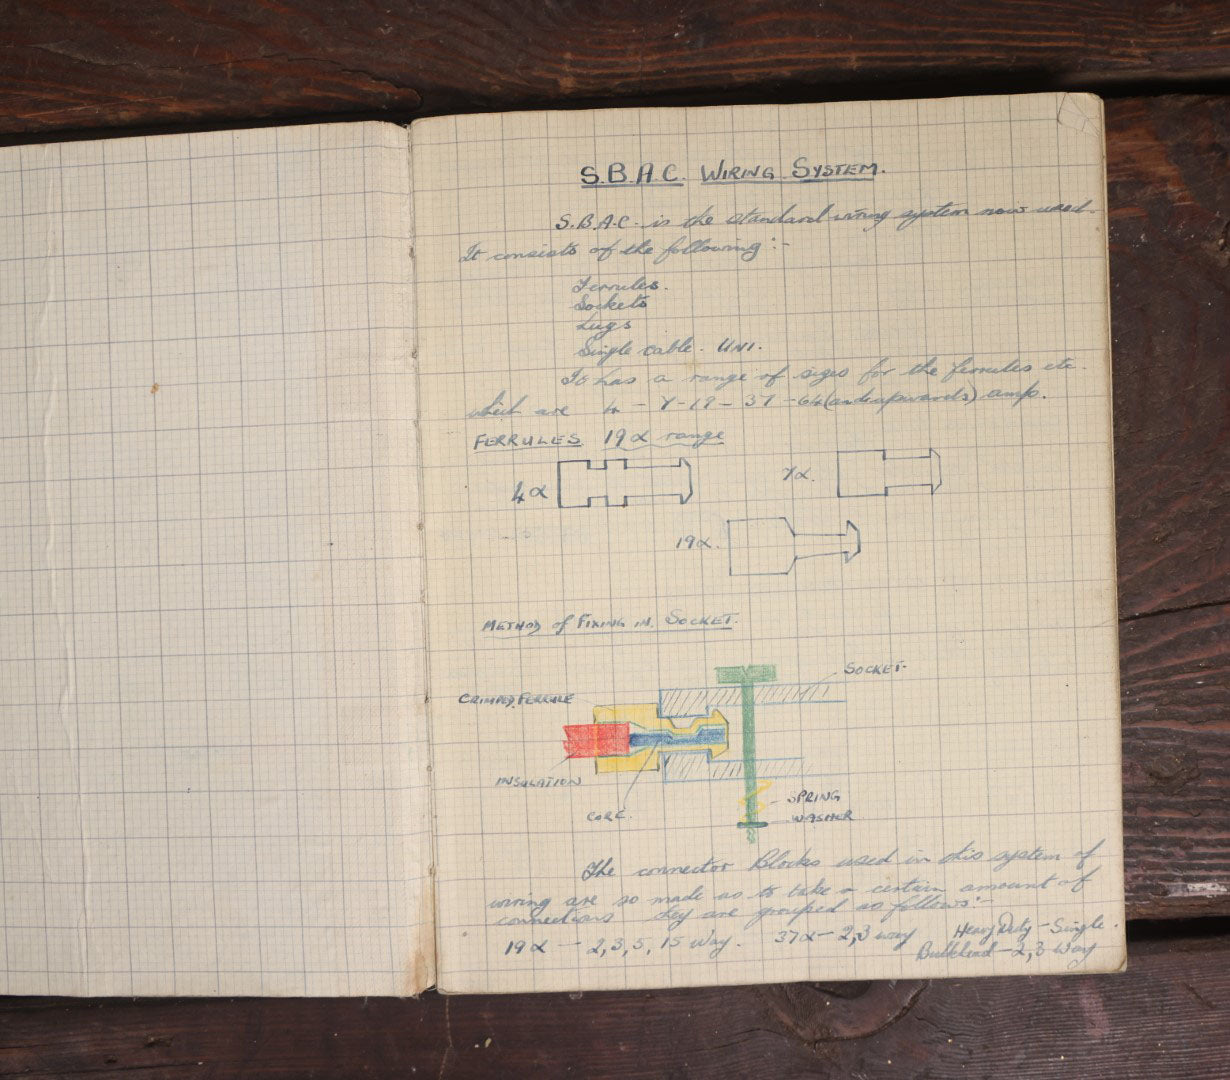 S.B.A.C. WIRING SYSTEM.
S.B.A.C. is the standard wiring system now used.
It consists of the following :-
Ferrules.
Sockets
Lugs
Single cable. UNI.
It has a range of sizes for the ferrules etc.
which are 4 - 7 - 19 - 37 - 64 (and upwards) amp.
FERRULES 19α range
4α
7α.
19α.
METHOD of FIXING IN. SOCKET.
SOCKET.
CRIMPED FERRULE
INSULATION
CORE.
SPRING
WASHER
The connector Blocks used in this system of
wiring are so made as to take a certain amount of
connections they are grouped as follows :-
19α - 2,3,5,15 way. 37α - 2,3 way Heavy Duty - Single.
Bulkhead - 2,3 Way